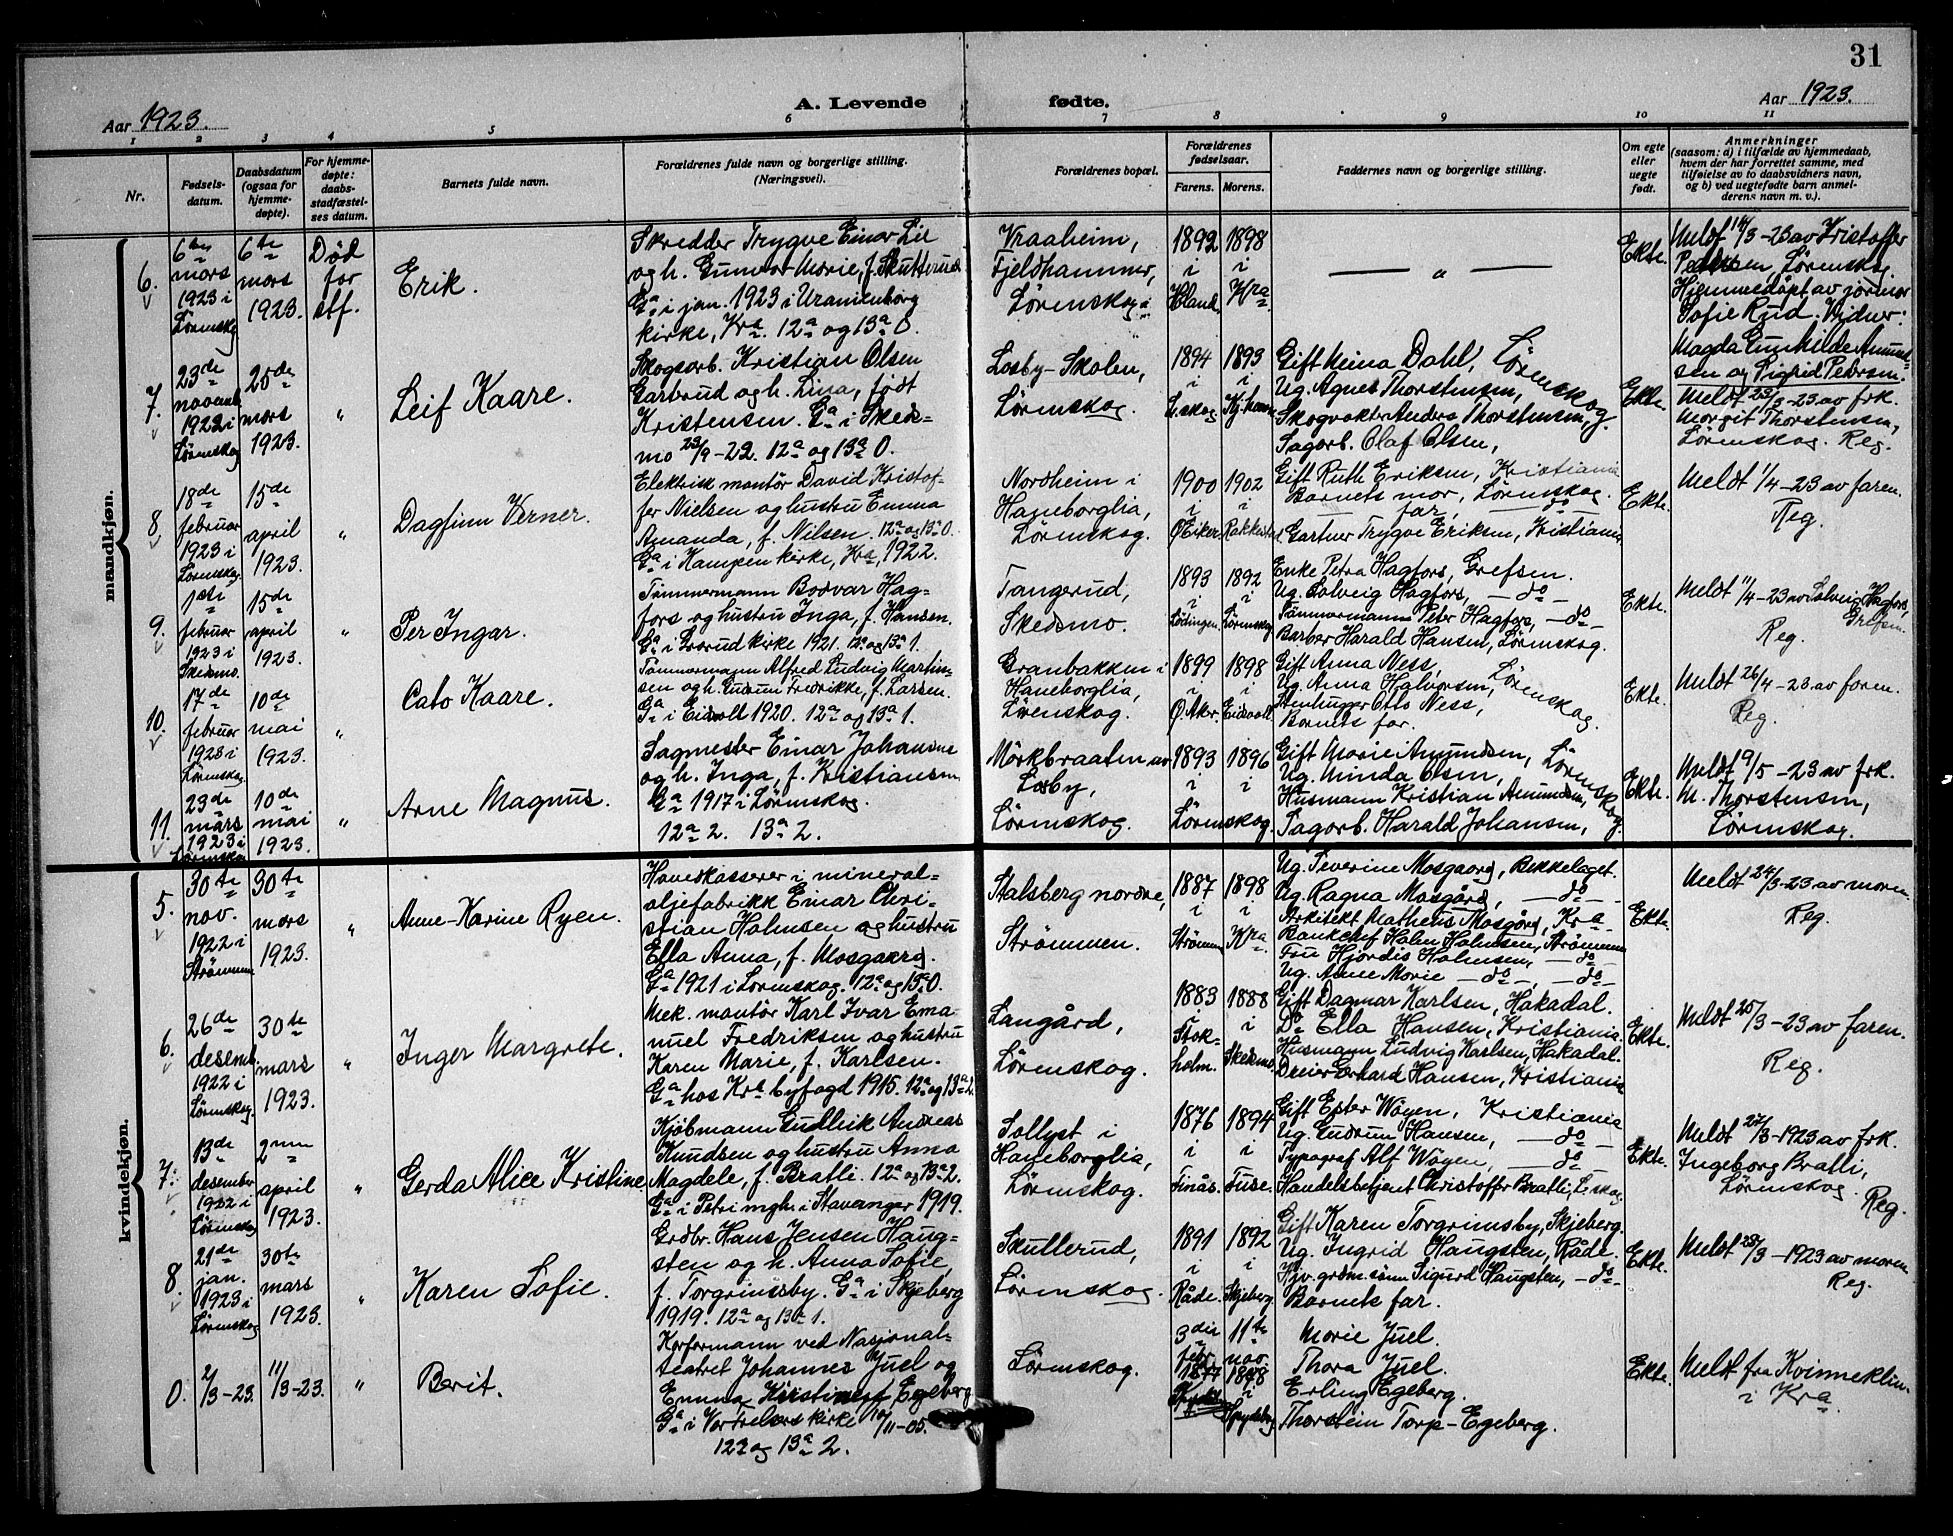 31
A. Levende fødte.
Aar 1923.
Aar 1923.
1 2 3 4 5 6 7 8 9 10 11
Nr.
Fødsels-
datum.
Daabsdatum
(ogsaa for
hjemme-
døpte).
For hjemme-
døpte:
daabs-
stadfæstel-
ses datum.
Barnets fulde navn.
Forældrenes fulde navn og borgerlige stilling.
(Næringsvei).
Forældrenes bopæl.
Forældrenes
fødselsaar.
Farens. Morens.
Faddernes navn og borgerlige stilling.
Om egte
eller
uegte
født.
Anmerkninger
(saasom: a) i tilfælde av hjemmedaab,
hvem der har forrettet samme, med
tilføielse av to daabsvidners navn,
og b) ved uegtefødte barn anmel-
derens navn m. v.).
mandkjøn.
6.
6te
mars
1923 i
Lörenskog
6te
mars
1923.
Död
för
stf.
Erik.
Skredder Trygve Einar Lie
og h. Gunvor Marie, f. Skutterud
Ga i jan. 1923 i Uranienborg
kirke, Kra. 12a og 13a 0.
Vraaheim,
Fjeldhammer,
Lörenskog
1892 i Höland
1898 i Kra
— " —
Ekte.
Meldt 14/3-23 av Kristoffer
Pedersen, Lörenskog.
Hjemmedöpt av jormor
Sofie Rud. Vidner:
Magda Gunhilde Amund-
sen og Sigrid Pedersen.
7.
23de
novemb.
1922 i
Lörenskog
25de
mars
1923.
"
Leif Kaare.
Skogsarb. Kristian Olsen
Garbrud og h. Lina, födt
Kristensen. Ga i Skeds-
mo 23/9-22. 12a og 13a 0.
Losby-Skolen,
Lörenskog.
1894 i L.skog
1893 i
Gift Meina Dahl, Lörenskog
Ug. Agnes Thorstensen,
Skogvokter Anders Thorstensen,
Sagarb. Olaf Olsen,
Ekte.
Meldt 23/3-23 av frk.
Margit Thorstensen,
Lörenskog. Reg.
8.
18de
februar
1923 i
Lörenskog
15de
april
1923.
"
Dagfinn Verner.
Elektrisk montör David Kristof-
fer Nielsen og hustru Emma
Amanda, f. Nilsen. 12a og 13a 0.
Ga i Kampen kirke, Kra, 1922.
Nordheim i
Haneborglia,
Lörenskog.
1900 i Ö Eiker
1902 i Rakkestad
Gift Ruth Eriksen, Kristiania
Barnets mor, Lörenskog.
— far, — do —
Gartner Trygve Eriksen, Kristiania
Ekte.
Meldt 1/4-23 av faren.
Reg.
9.
1ste
februar
1923 i
Skedsmo.
15de
april
1923.
"
Per Ingar.
Tömmermann Bodvar Hag-
fors og hustru Inga, f. Hansen.
Ga i Grorud kirke 1921. 12a og 13a 1.
Tangerud,
Skedsmo.
1893 i Lödingen
1892 i Lörenskog
Enke Petra Hagfors, Grefsen.
Ug. Solveig Hagfors, — do —
Tömmermann Peter Hagfors, — do —
Barber Harald Hansen, Lörenskog.
Ekte.
Meldt 11/4-23 av Solveig Hagfors,
Grefsen.
Reg.
10.
17de
februar
1923 i
Lörenskog
10de
mai
1923.
"
Cato Kaare.
Tömmermann Alfred Ludvig Martin-
sen og h. Gudrun Fredrikke, f. Larsen.
Ga i Eidsvolt 1920. 12a og 13a 1.
Granbakken i
Haneborglia,
Lörenskog.
1899 i Ö. Aker
1898 i Eidsvolt
Gift Anna Ness, Lörenskog.
Ug. Anna Halvorsen,
Stenhugger Otto Ness,
Barnets far.
Ekte.
Meldt 26/4-23 av faren.
Reg.
11.
23de
mars
1923 i
Lörenskog
10de
mai
1923.
"
Arne Magnus.
Sagmester Einar Johansen
og h. Inga, f. Kristiansen.
Ga 1917 i Lörenskog.
12a 2. 13a 2.
Mörkbraaten av
Losby,
Lörenskog.
1893 i 1896 i
Lörenskog.
Gift Marie Amundsen, Lörenskog.
Ug. Minda Olsen,
Husmann Kristian Amundsen,
Sagarb. Harald Johansen,
Ekte.
Meldt 9/5-23 av frk.
M. Thorstensen,
Lörenskog.
kvindekjøn.
5.
30te
nov.
1922 i
Strömmen
30te
mars
1923.
"
Anne-Karine Ryen.
Hovedkasserer i mineral-
oljefabrikk Einar Chri-
stian Holmsen og hustru
Ella Anna, f. Mosgaard.
Ga 1921 i Lörenskog. 12a og 13a 0.
Stalsberg nordre,
Strömmen.
1887 i Strömmen
1898 i Kra
Ug. Severine Mosgaard, Bekkelaget.
Ug. Ragna Mosgård, — do —
Arkitekt Matheus Mosgård, Kra
Bankchef Halm Holmsen, Strömmen
Fru Hjördis Holmsen, — do —
Ug. Anne Marie — do —, — do —
Ekte.
Meldt 24/3-23 av moren.
Reg.
6.
26de
desemb.
1922 i
Lörenskog
30te
mars
1923.
"
Inger Margrete.
Mek. montör Karl Ivar Ema-
nuel Fredriksen og hustru
Karen Marie, f. Karlsen.
Ga hos Kra byfogd 1915. 12a og 13a 2.
Langård,
Lörenskog.
1883 i Stok-
holm.
1888 i Skedsmo
Gift Dagmar Karlsen, Hakadal.
Do Ella Hansen, Kristiania.
Husmann Ludvig Karlsen, Hakadal.
Dreier Erhard Hansen, Kristiania
Ekte.
Meldt 25/3-23 av faren.
Reg.
7.
13de
desember
1922 i
Lörenskog
2nen
april
1923.
"
Gerda Alice Kristine
Kjöbmann Gudleik Andreas
Knudsen og hustru Anna
Magdele, f. Bratli. 12a og 13a 2.
Ga i Petri mgh. i Stavanger 1919.
Sollyst i
Haneborglia,
Lörenskog.
1876 i Finås.
1894 i Fuse.
Gift Ester Wöyen, Kristiania
Ug. Gudrun Hansen, — do —
Typograf Alf Wöyen, — do —
Handelsbetjent Christoffer Bratli, L.skog
Ekte.
Meldt 27/3-1923 av frk.
Ingeborg Bratli,
Lörenskog.
Reg.
8.
21de
jan.
1923 i
Lörenskog
30te
mars
1923.
"
Karen Sofie.
Grdbr. Hans Jensen Haug-
sten og h. Anna Sofie,
f. Torgrimsby. Ga i Skjeberg
1919. 12a og 13a 1.
Skullerud,
Lörenskog.
1891 i Råde.
1892 i Skjeberg.
Gift Karen Torgrimsby, Skjeberg.
Ug. Ingrid Haugsten, Råde.
Hjv. grdm.sönn Sigurd Haugsten, — do —
Barnets far.
Ekte.
Meldt 28/3-1923 av moren
Reg.
0.
2/3-23.
11/3-23.
"
Berit.
Korformann ved Nasjonal-
teatret Johannes Juel og
Emma Kirstine f. Egeberg
Ga i Vor Frelsers kirke 10/11-05.
12a og 13a 2.
Lörenskog.
3die
febr.
1877
11te
nov.
1878 i
Spydeberg
Marie Juel.
Thora Juel.
Erling Egeberg.
Thorstein Torp-Egeberg.
Ekte.
Meldt fra Kvinneklin.
i Kra.